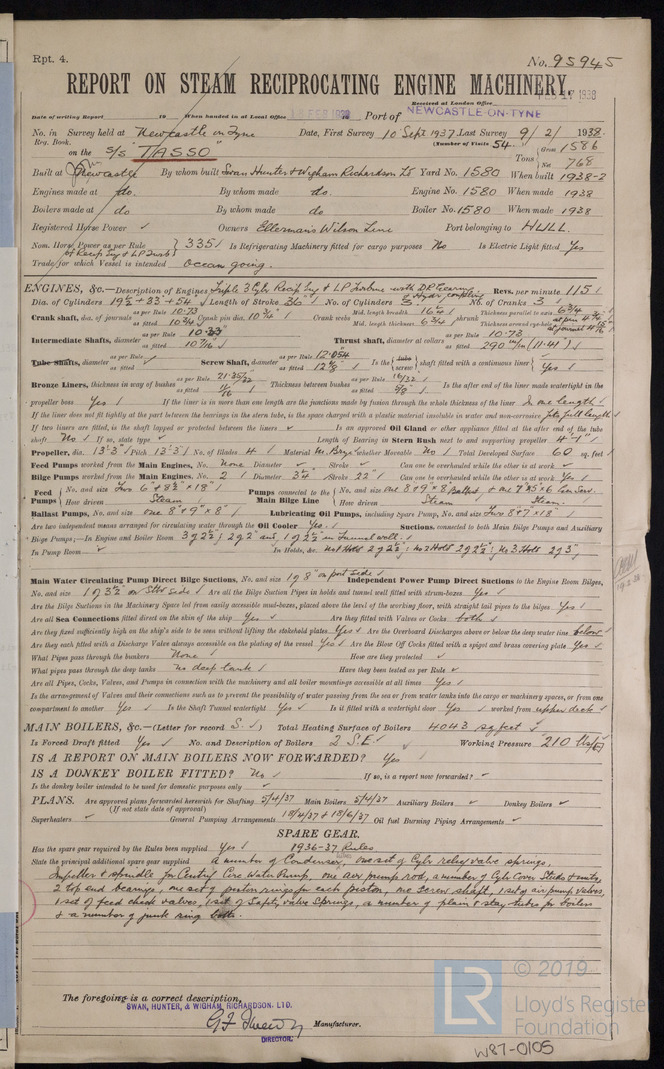 Rpt. 4.
No. 95945
REPORT ON STEAM RECIPROCATING ENGINE MACHINERY.
Received at London Office FEB 17 1938
Date of writing Report to When handed in at Local Office FEB 1938 Port of NEWCASTLE-ON-TYNE
No. in Survey held at Newcastle on Tyne Date, First Survey 10 Sept 1937 Last Survey 9/2/ 1938.
Reg. Book. (Number of Visits 54
on the S/S "TASSO" Tons Gross 1586 Net 768
Built at Newcastle By whom built Swan Hunter & Wigham Richardson Ld Yard No. 1580 When built 1938-2
Engines made at do. By whom made do. Engine No. 1580 When made 1938
Boilers made at do By whom made do Boiler No. 1580 When made 1938
Registered Horse Power Owners Ellermans Wilson Line Port belonging to HULL.
Nom. Horse Power as per Rule 335 Is Refrigerating Machinery fitted for cargo purposes No Is Electric Light fitted Yes
of Recip Eng & LP Turb
Trade for which Vessel is intended Ocean going.
ENGINES, &c.—Description of Engines Triple 3 Cylr Recip Eng & LP Turbine with D.R. Gearing & Hydr. coupling Revs. per minute 115
Dia. of Cylinders 19½" + 33" + 54" Length of Stroke 36" No. of Cylinders 3 No. of Cranks 3
Crank shaft, dia. of journals as per Rule 10.73 as fitted 10¾ Crank pin dia. 10¾" Crank webs Mid. length breadth 16¼ Mid. length thickness 6¾ shrunk Thickness parallel to axis 6¾ Thickness around eye-hole
Intermediate Shafts, diameter as per Rule 10.33 as fitted 10 7/16" Thrust shaft, diameter at collars as per Rule 10.73 as fitted 290 m/m (11.41)
Tube Shafts, diameter as per Rule as fitted Screw Shaft, diameter as per Rule 12.054 as fitted 12⅛ Is the tube screw shaft fitted with a continuous liner Yes
Bronze Liners, thickness in way of bushes as per Rule 21.35/32 as fitted 11/16 Thickness between bushes as per Rule 16/32 as fitted 5/8 Is the after end of the liner made watertight in the
propeller boss Yes If the liner is in more than one length are the junctions made by fusion through the whole thickness of the liner In one length
If the liner does not fit tightly at the part between the bearings in the stern tube, is the space charged with a plastic material insoluble in water and non-corrosive fits full length
If two liners are fitted, is the shaft lapped or protected between the liners Is an approved Oil Gland or other appliance fitted at the after end of the tube
shaft No If so, state type Length of Bearing in Stern Bush next to and supporting propeller 4'-1"
Propeller, dia. 13'-3" Pitch 13'-3" No. of Blades 4 Material M. Brze whether Moveable No Total Developed Surface 60 sq. feet
Feed Pumps worked from the Main Engines, No. None Diameter Stroke Can one be overhauled while the other is at work
Bilge Pumps worked from the Main Engines, No. 2 Diameter 3¼" Stroke 22" Can one be overhauled while the other is at work Yes
Feed Pumps No. and size Two 6" & 8½" × 18" Pumps connected to the Main Bilge Line No. and size One 8" + 9" × 8" Ballast, & one
How driven Steam How driven Steam Steam
Ballast Pumps, No. and size one 8" + 9" × 8" Lubricating Oil Pumps, including Spare Pump, No. and size Two 8" + 7" × 18"
Are two independent means arranged for circulating water through the Oil Cooler Yes Suctions, connected to both Main Bilge Pumps and Auxiliary
Bilge Pumps;—In Engine and Boiler Room 3 @ 2½"; 2 @ 2" and 1 @ 2½" in Tunnel well.
In Pump Room In Holds, &c. No 1 Hold 2 @ 2½"; No 2 Hold 2 @ 2½"; No 3 Hold 2 @ 3"
Main Water Circulating Pump Direct Bilge Suctions, No. and size 1 @ 8" on port side Independent Power Pump Direct Suctions to the Engine Room Bilges,
No. and size 1 @ 3½" on Stbd side Are all the Bilge Suction Pipes in holds and tunnel well fitted with strum-boxes Yes
Are the Bilge Suctions in the Machinery Space led from easily accessible mud-boxes, placed above the level of the working floor, with straight tail pipes to the bilges Yes
Are all Sea Connections fitted direct on the skin of the ship Yes Are they fitted with Valves or Cocks both
Are they fixed sufficiently high on the ship's side to be seen without lifting the stokehold plates Yes Are the Overboard Discharges above or below the deep water line below
Are they each fitted with a Discharge Valve always accessible on the plating of the vessel Yes Are the Blow Off Cocks fitted with a spigot and brass covering plate Yes
What Pipes pass through the bunkers None How are they protected
What pipes pass through the deep tanks No deep tanks Have they been tested as per Rule
Are all Pipes, Cocks, Valves, and Pumps in connection with the machinery and all boiler mountings accessible at all times Yes
Is the arrangement of Valves and their connections such as to prevent the possibility of water passing from the sea or from water tanks into the cargo or machinery spaces, or from one
compartment to another Yes Is the Shaft Tunnel watertight Yes Is it fitted with a watertight door Yes worked from upper deck
MAIN BOILERS, &c.—(Letter for record S.) Total Heating Surface of Boilers 4043 sq feet
Is Forced Draft fitted Yes No. and Description of Boilers 2 S.E. Working Pressure 210 lbs
IS A REPORT ON MAIN BOILERS NOW FORWARDED? Yes
IS A DONKEY BOILER FITTED? No If so, is a report now forwarded?
Is the donkey boiler intended to be used for domestic purposes only
PLANS. Are approved plans forwarded herewith for Shafting 5/4/37 Main Boilers 5/4/37 Auxiliary Boilers Donkey Boilers
(If not state date of approval)
Superheaters General Pumping Arrangements 13/4/37 + 18/6/37 Oil fuel Burning Piping Arrangements
SPARE GEAR.
Has the spare gear required by the Rules been supplied Yes 1936-37 Rules
State the principal additional spare gear supplied a number of Condenser, one set of Cylr relief valve springs,
Impeller & spindle for Centrif Circ Water Pump, one air pump rod, a number of Cylr Cover Studs & nuts,
2 top end bearings, one set of piston rings for each piston, one Screw shaft, 1 set of air pump valves,
1 set of feed check valves, 1 set of Safety valve Springs, a number of plain & stay tubes for boilers
& a number of junk ring bolts.
The foregoing is a correct description,
SWAN, HUNTER, & WIGHAM RICHARDSON, LTD.
Manufacturer.
DIRECTOR.
© 2019
LR
Lloyd's Register
Foundation
W87-0105